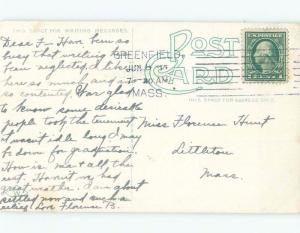 THIS SPACE FOR WRITING MESSAGES
Dear F - Have been so
busy that writing has
been neglected. I have
been so
so Was glad
to know some desirable
people took the tenement
it wasn't idle long. I may
be down for graduation.
How is ma + all the
rest. Haven't we had
great weather. I am about
settled now and such a
feeling. Love Florence B.
POST
CARD
GREENFIELD,
JUN
7-30 AM
MASS.
THIS SPACE FOR ADDRESS ONLY.
Miss Florence Hunt
Littleton
Mass.